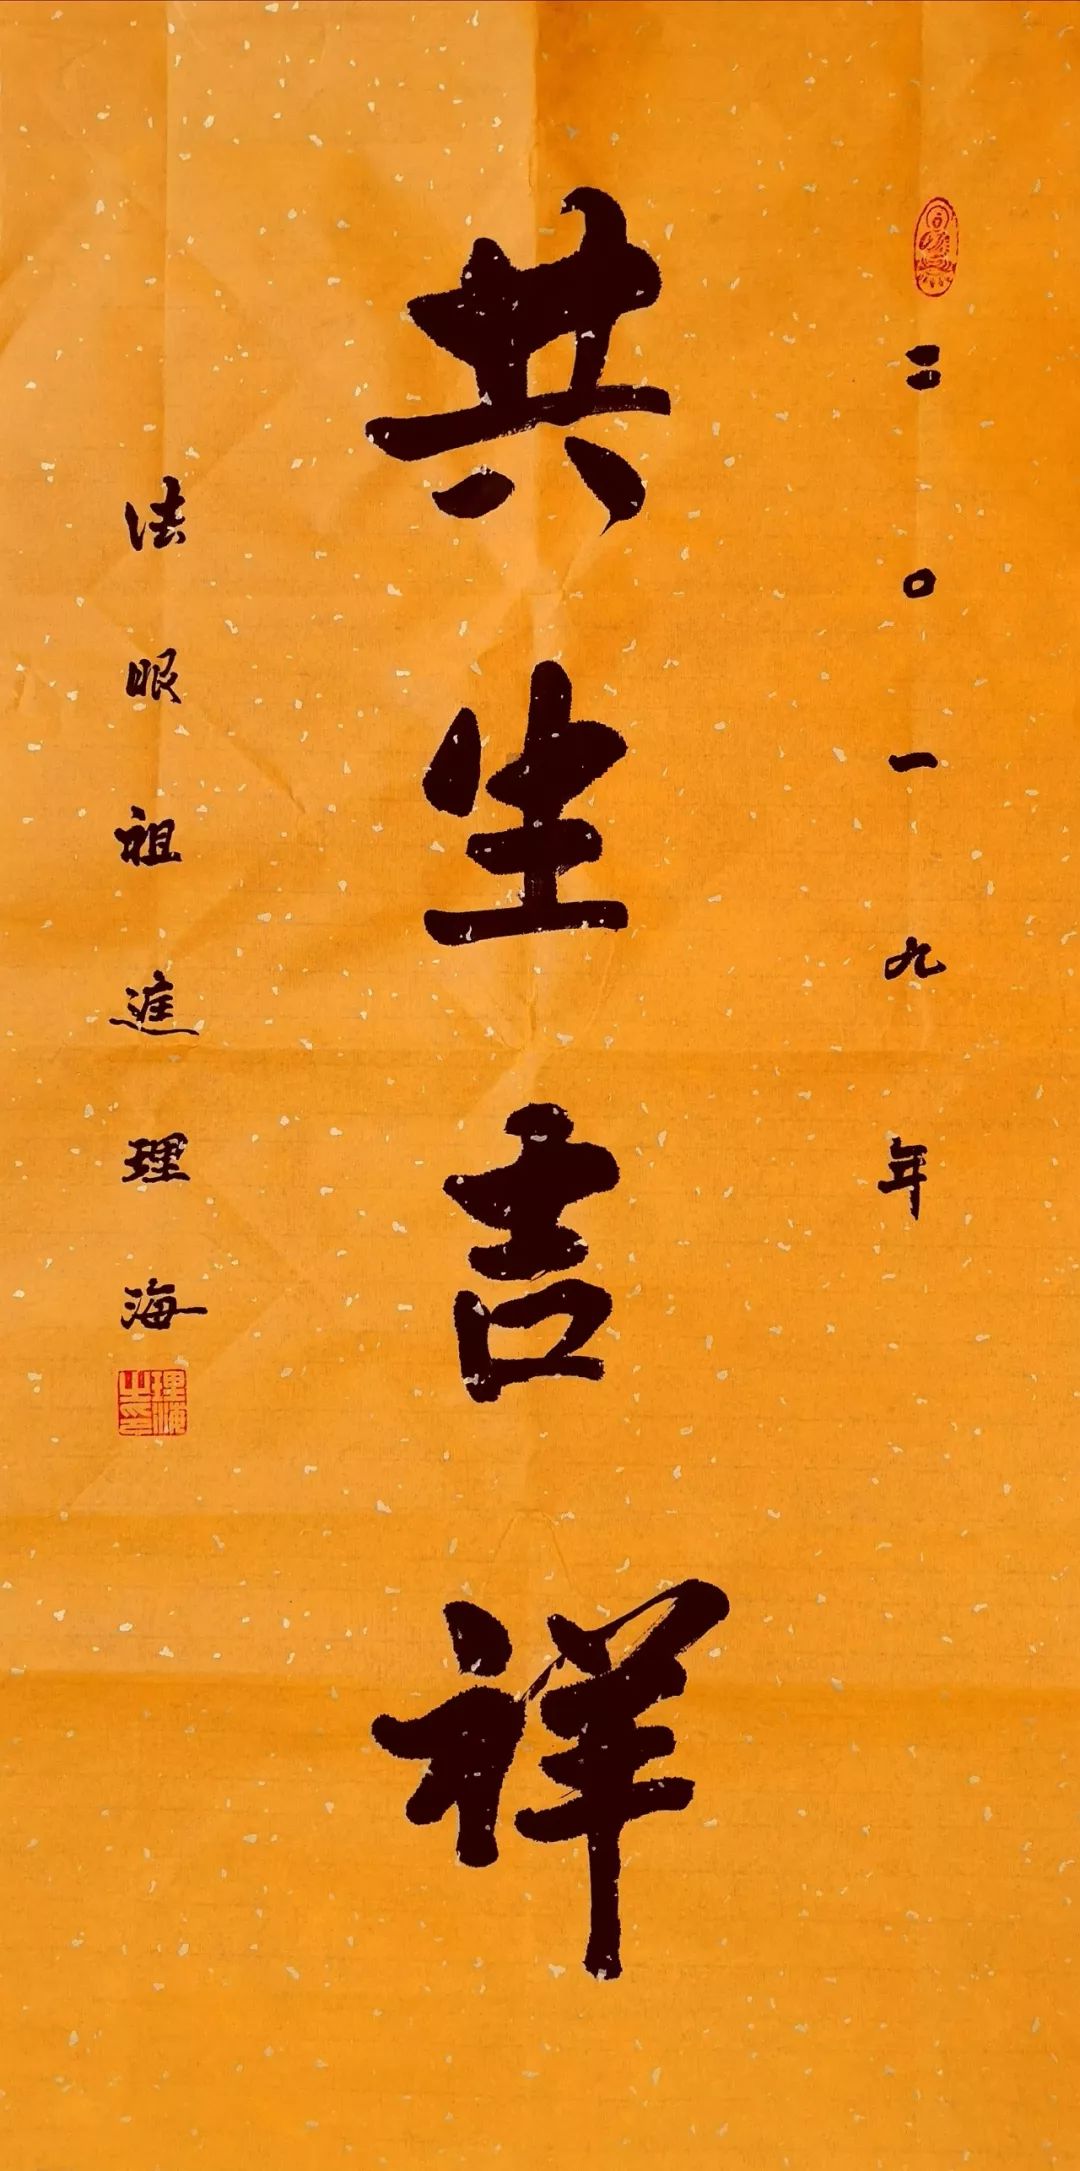 二〇一九年
共生吉祥
法眼祖庭理海
理海之印